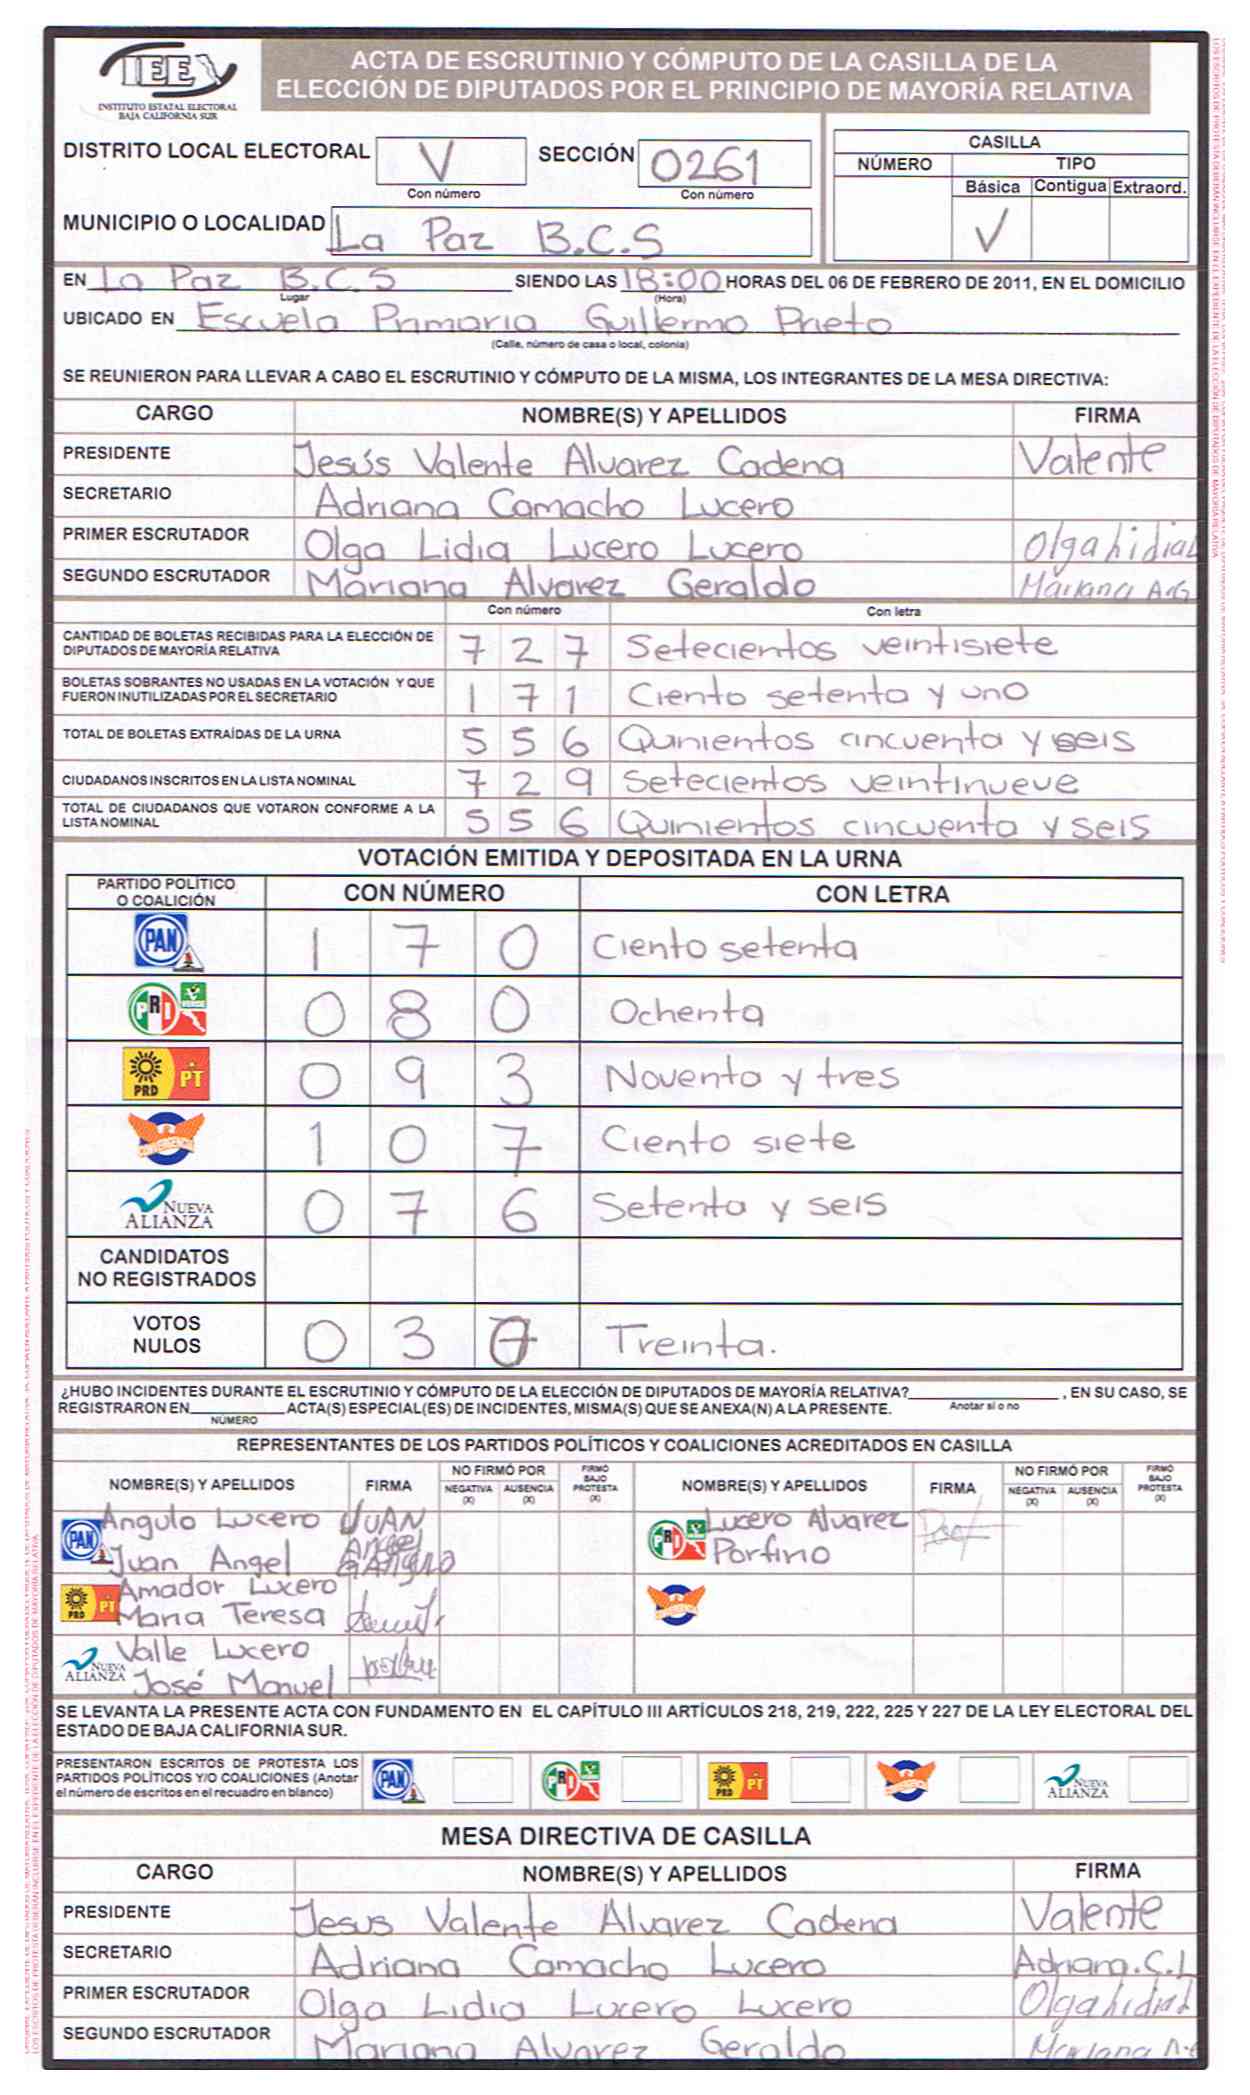 IEE
INSTITUTO ESTATAL ELECTORAL
BAJA CALIFORNIA SUR
ACTA DE ESCRUTINIO Y CÓMPUTO DE LA CASILLA DE LA
ELECCIÓN DE DIPUTADOS POR EL PRINCIPIO DE MAYORÍA RELATIVA
DISTRITO LOCAL ELECTORAL V SECCIÓN 0261
Con número Con número
CASILLA
NÚMERO TIPO
Básica Contigua Extraord.
✓
MUNICIPIO O LOCALIDAD La Paz B.C.S
EN La Paz B.C.S SIENDO LAS 18:00 HORAS DEL 06 DE FEBRERO DE 2011, EN EL DOMICILIO
Lugar (Hora)
UBICADO EN Escuela Primaria Guillermo Prieto
(Calle, número de casa o local, colonia)
SE REUNIERON PARA LLEVAR A CABO EL ESCRUTINIO Y CÓMPUTO DE LA MISMA, LOS INTEGRANTES DE LA MESA DIRECTIVA:
CARGO NOMBRE(S) Y APELLIDOS FIRMA
PRESIDENTE Jesús Valente Alvarez Cadena Valente
SECRETARIO Adriana Camacho Lucero
PRIMER ESCRUTADOR Olga Lidia Lucero Lucero Olga Lidia L
SEGUNDO ESCRUTADOR Mariana Alvarez Geraldo Mariana A.G
Con número Con letra
CANTIDAD DE BOLETAS RECIBIDAS PARA LA ELECCIÓN DE
DIPUTADOS DE MAYORÍA RELATIVA 7 2 7 Setecientos veintisiete
BOLETAS SOBRANTES NO USADAS EN LA VOTACIÓN Y QUE
FUERON INUTILIZADAS POR EL SECRETARIO 1 7 1 Ciento setenta y uno
TOTAL DE BOLETAS EXTRAÍDAS DE LA URNA 5 5 6 Quinientos cincuenta y seis
CIUDADANOS INSCRITOS EN LA LISTA NOMINAL 7 2 9 Setecientos veintinueve
TOTAL DE CIUDADANOS QUE VOTARON CONFORME A LA
LISTA NOMINAL 5 5 6 Quinientos cincuenta y seis
VOTACIÓN EMITIDA Y DEPOSITADA EN LA URNA
PARTIDO POLÍTICO
O COALICIÓN CON NÚMERO CON LETRA
PAN 1 7 0 Ciento setenta
PRI VERDE 0 8 0 Ochenta
PRD PT 0 9 3 Noventa y tres
CONVERGENCIA 1 0 7 Ciento siete
NUEVA
ALIANZA 0 7 6 Setenta y seis
CANDIDATOS
NO REGISTRADOS
VOTOS
NULOS 0 3 0 Treinta.
¿HUBO INCIDENTES DURANTE EL ESCRUTINIO Y CÓMPUTO DE LA ELECCIÓN DE DIPUTADOS DE MAYORÍA RELATIVA? , EN SU CASO, SE
REGISTRARON EN ACTA(S) ESPECIAL(ES) DE INCIDENTES, MISMA(S) QUE SE ANEXA(N) A LA PRESENTE. Anotar sí o no
NÚMERO
REPRESENTANTES DE LOS PARTIDOS POLÍTICOS Y COALICIONES ACREDITADOS EN CASILLA
NOMBRE(S) Y APELLIDOS FIRMA NO FIRMÓ POR NEGATIVA (X) AUSENCIA (X) FIRMÓ BAJO PROTESTA (X) NOMBRE(S) Y APELLIDOS FIRMA NO FIRMÓ POR NEGATIVA (X) AUSENCIA (X) FIRMÓ BAJO PROTESTA (X)
PAN Angulo Lucero JUAN PRI VERDE Lucero Alvarez
Juan Angel Angel Angulo Porfirio
PRD PT Amador Lucero CONVERGENCIA
Maria Teresa
NUEVA
ALIANZA Valle Lucero
José Manuel
SE LEVANTA LA PRESENTE ACTA CON FUNDAMENTO EN EL CAPÍTULO III ARTÍCULOS 218, 219, 222, 225 Y 227 DE LA LEY ELECTORAL DEL
ESTADO DE BAJA CALIFORNIA SUR.
PRESENTARON ESCRITOS DE PROTESTA LOS
PARTIDOS POLÍTICOS Y/O COALICIONES (Anotar
el número de escritos en el recuadro en blanco) PAN PRI VERDE PRD PT CONVERGENCIA NUEVA ALIANZA
MESA DIRECTIVA DE CASILLA
CARGO NOMBRE(S) Y APELLIDOS FIRMA
PRESIDENTE Jesus Valente Alvarez Cadena Valente
SECRETARIO Adriana Camacho Lucero Adriana.C.L
PRIMER ESCRUTADOR Olga Lidia Lucero Lucero Olga Lidia L
SEGUNDO ESCRUTADOR Mariana Alvarez Geraldo Mariana A.G